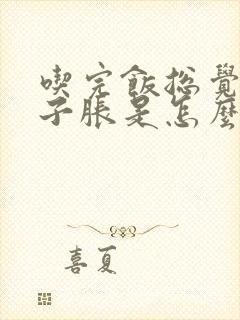 喫完飯總覺
子脹是怎麼
喜夏